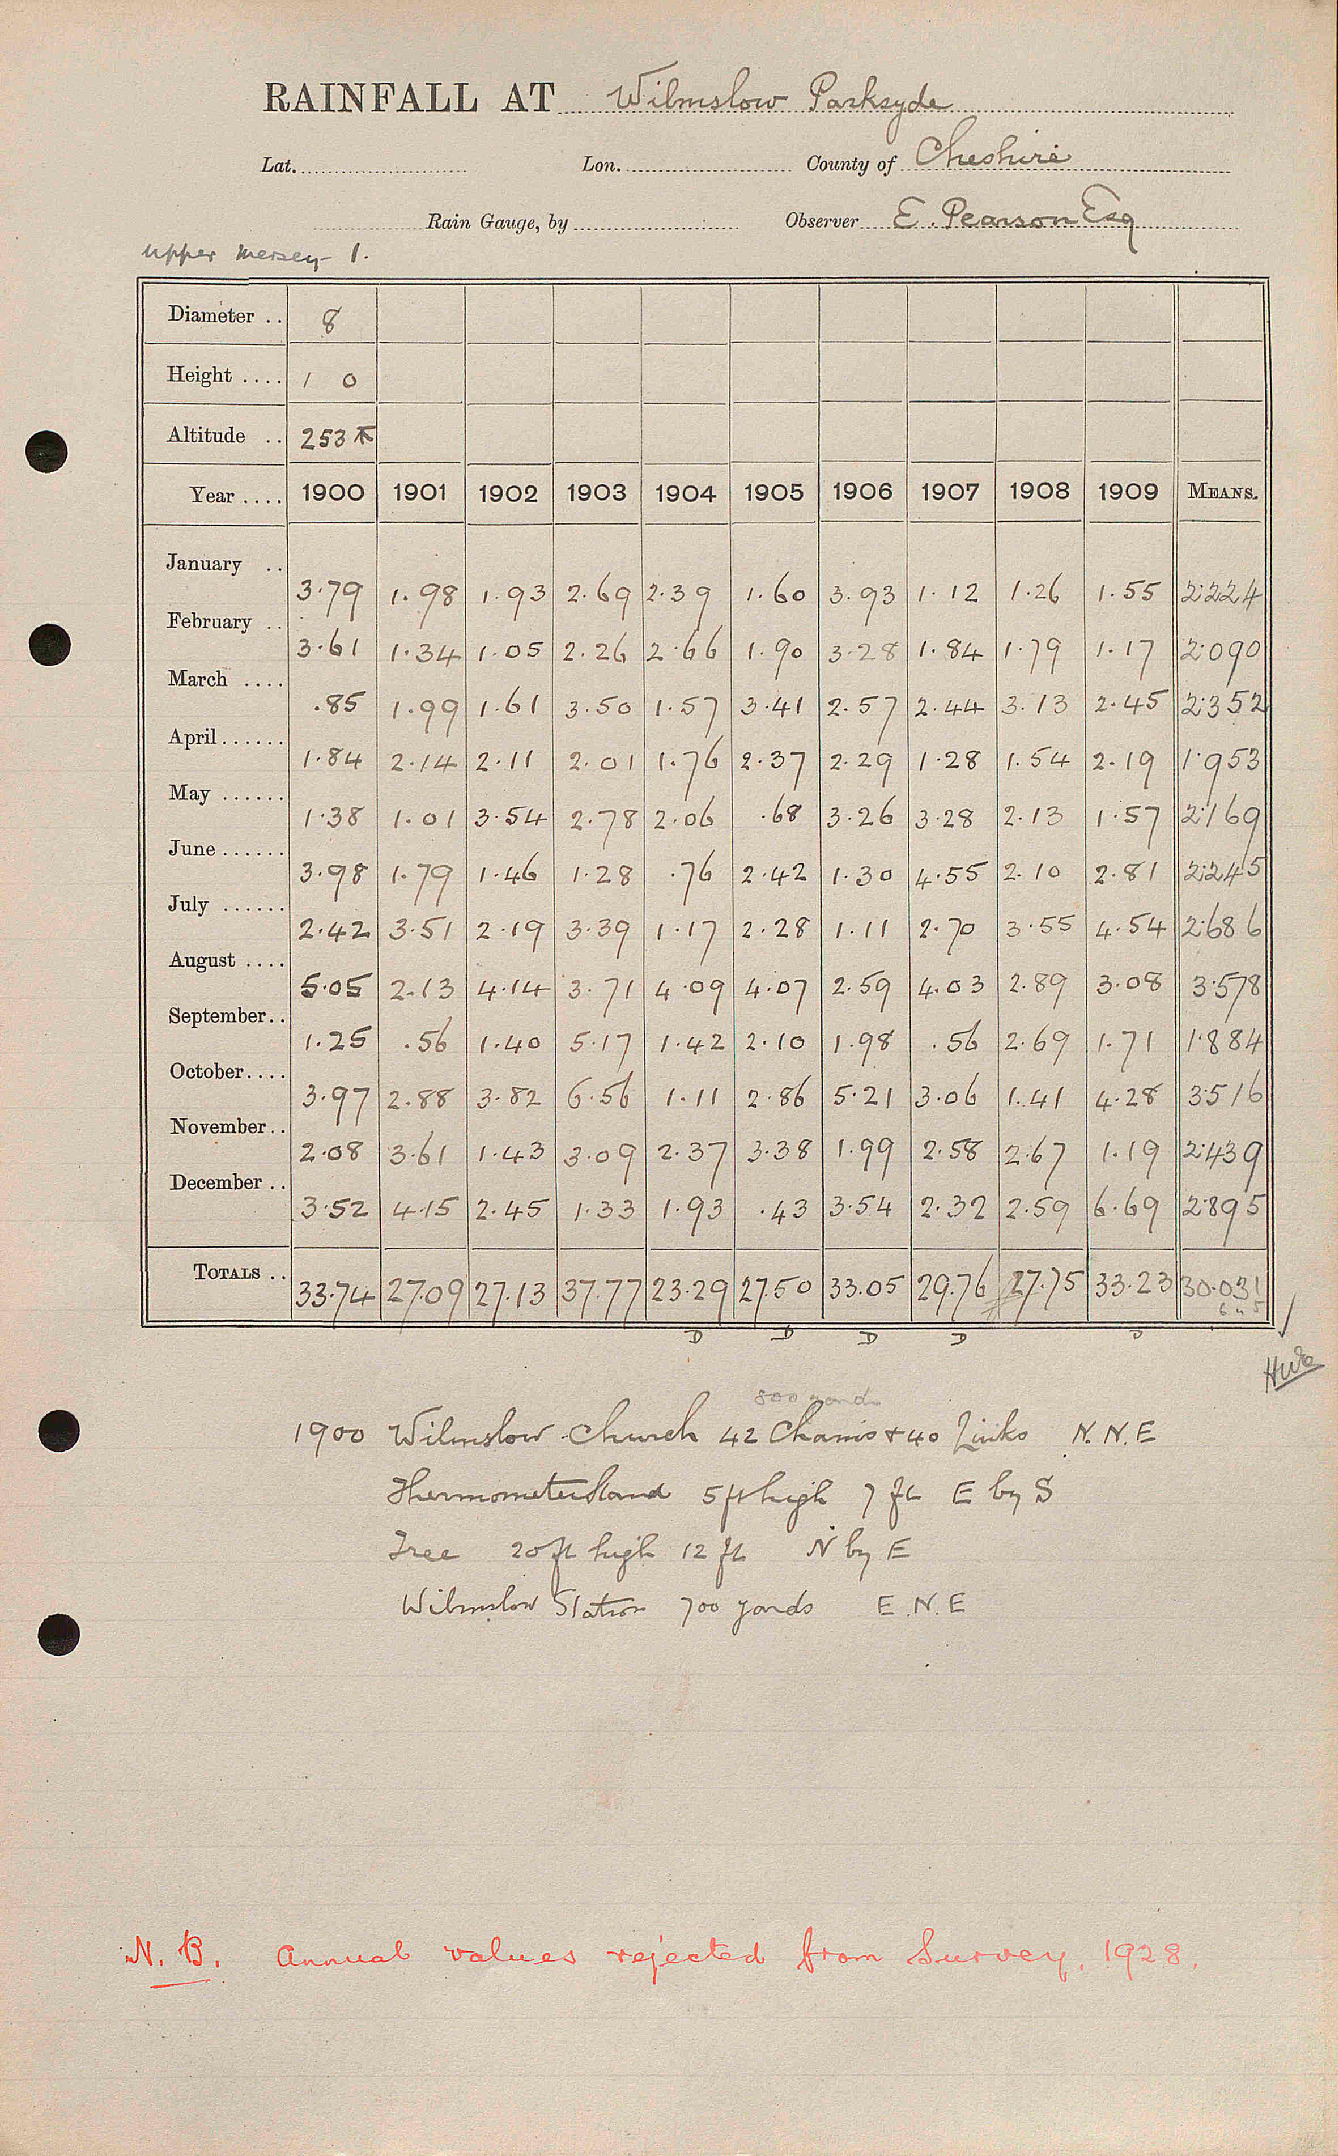 RAINFALL AT Wilmslow Parksyde
Lat. Lon. County of Cheshire
Rain Gauge, by Observer E. Pearson Esq
upper mersey 1.
Diameter .. 8
Height .... 1 0
Altitude .. 253
Year .... 1900 1901 1902 1903 1904 1905 1906 1907 1908 1909 MEANS.
January .. 3.79 1.98 1.93 2.69 2.39 1.60 3.93 1.12 1.26 1.55 2.224
February .. 3.61 1.34 1.05 2.26 2.66 1.90 3.28 1.84 1.79 1.17 2.090
March .... .85 1.99 1.61 3.50 1.57 3.41 2.57 2.44 3.13 2.45 2.352
April...... 1.84 2.14 2.11 2.01 1.76 2.37 2.29 1.28 1.54 2.19 1.953
May ...... 1.38 1.01 3.54 2.78 2.06 .68 3.26 3.28 2.13 1.57 2.169
June ...... 3.98 1.79 1.46 1.28 .76 2.42 1.30 4.55 2.10 2.81 2.245
July ...... 2.42 3.51 2.19 3.39 1.17 2.28 1.11 2.70 3.55 4.54 2.686
August .... 5.05 2.13 4.14 3.71 4.09 4.07 2.59 4.03 2.89 3.08 3.578
September.. 1.25 .56 1.40 5.17 1.42 2.10 1.98 .56 2.69 1.71 1.884
October.... 3.97 2.88 3.82 6.56 1.11 2.86 5.21 3.06 1.41 4.28 3.516
November.. 2.08 3.61 1.43 3.09 2.37 3.38 1.99 2.58 2.67 1.19 2.439
December .. 3.52 4.15 2.45 1.33 1.93 .43 3.54 2.32 2.59 6.69 2.895
TOTALS .. 33.74 27.09 27.13 37.77 23.29 27.50 33.05 29.76 27.75 33.23 30.031
D D D D D
800 yards
1900 Wilmslow Church 42 Chains + 40 Links N.N.E
Thermometer Stand 5 ft high 7 ft E by S
Tree 20 ft high 12 ft N by E
Wilmslow Station 700 yards E.N.E
N.B. Annual values rejected from Survey. 1928.